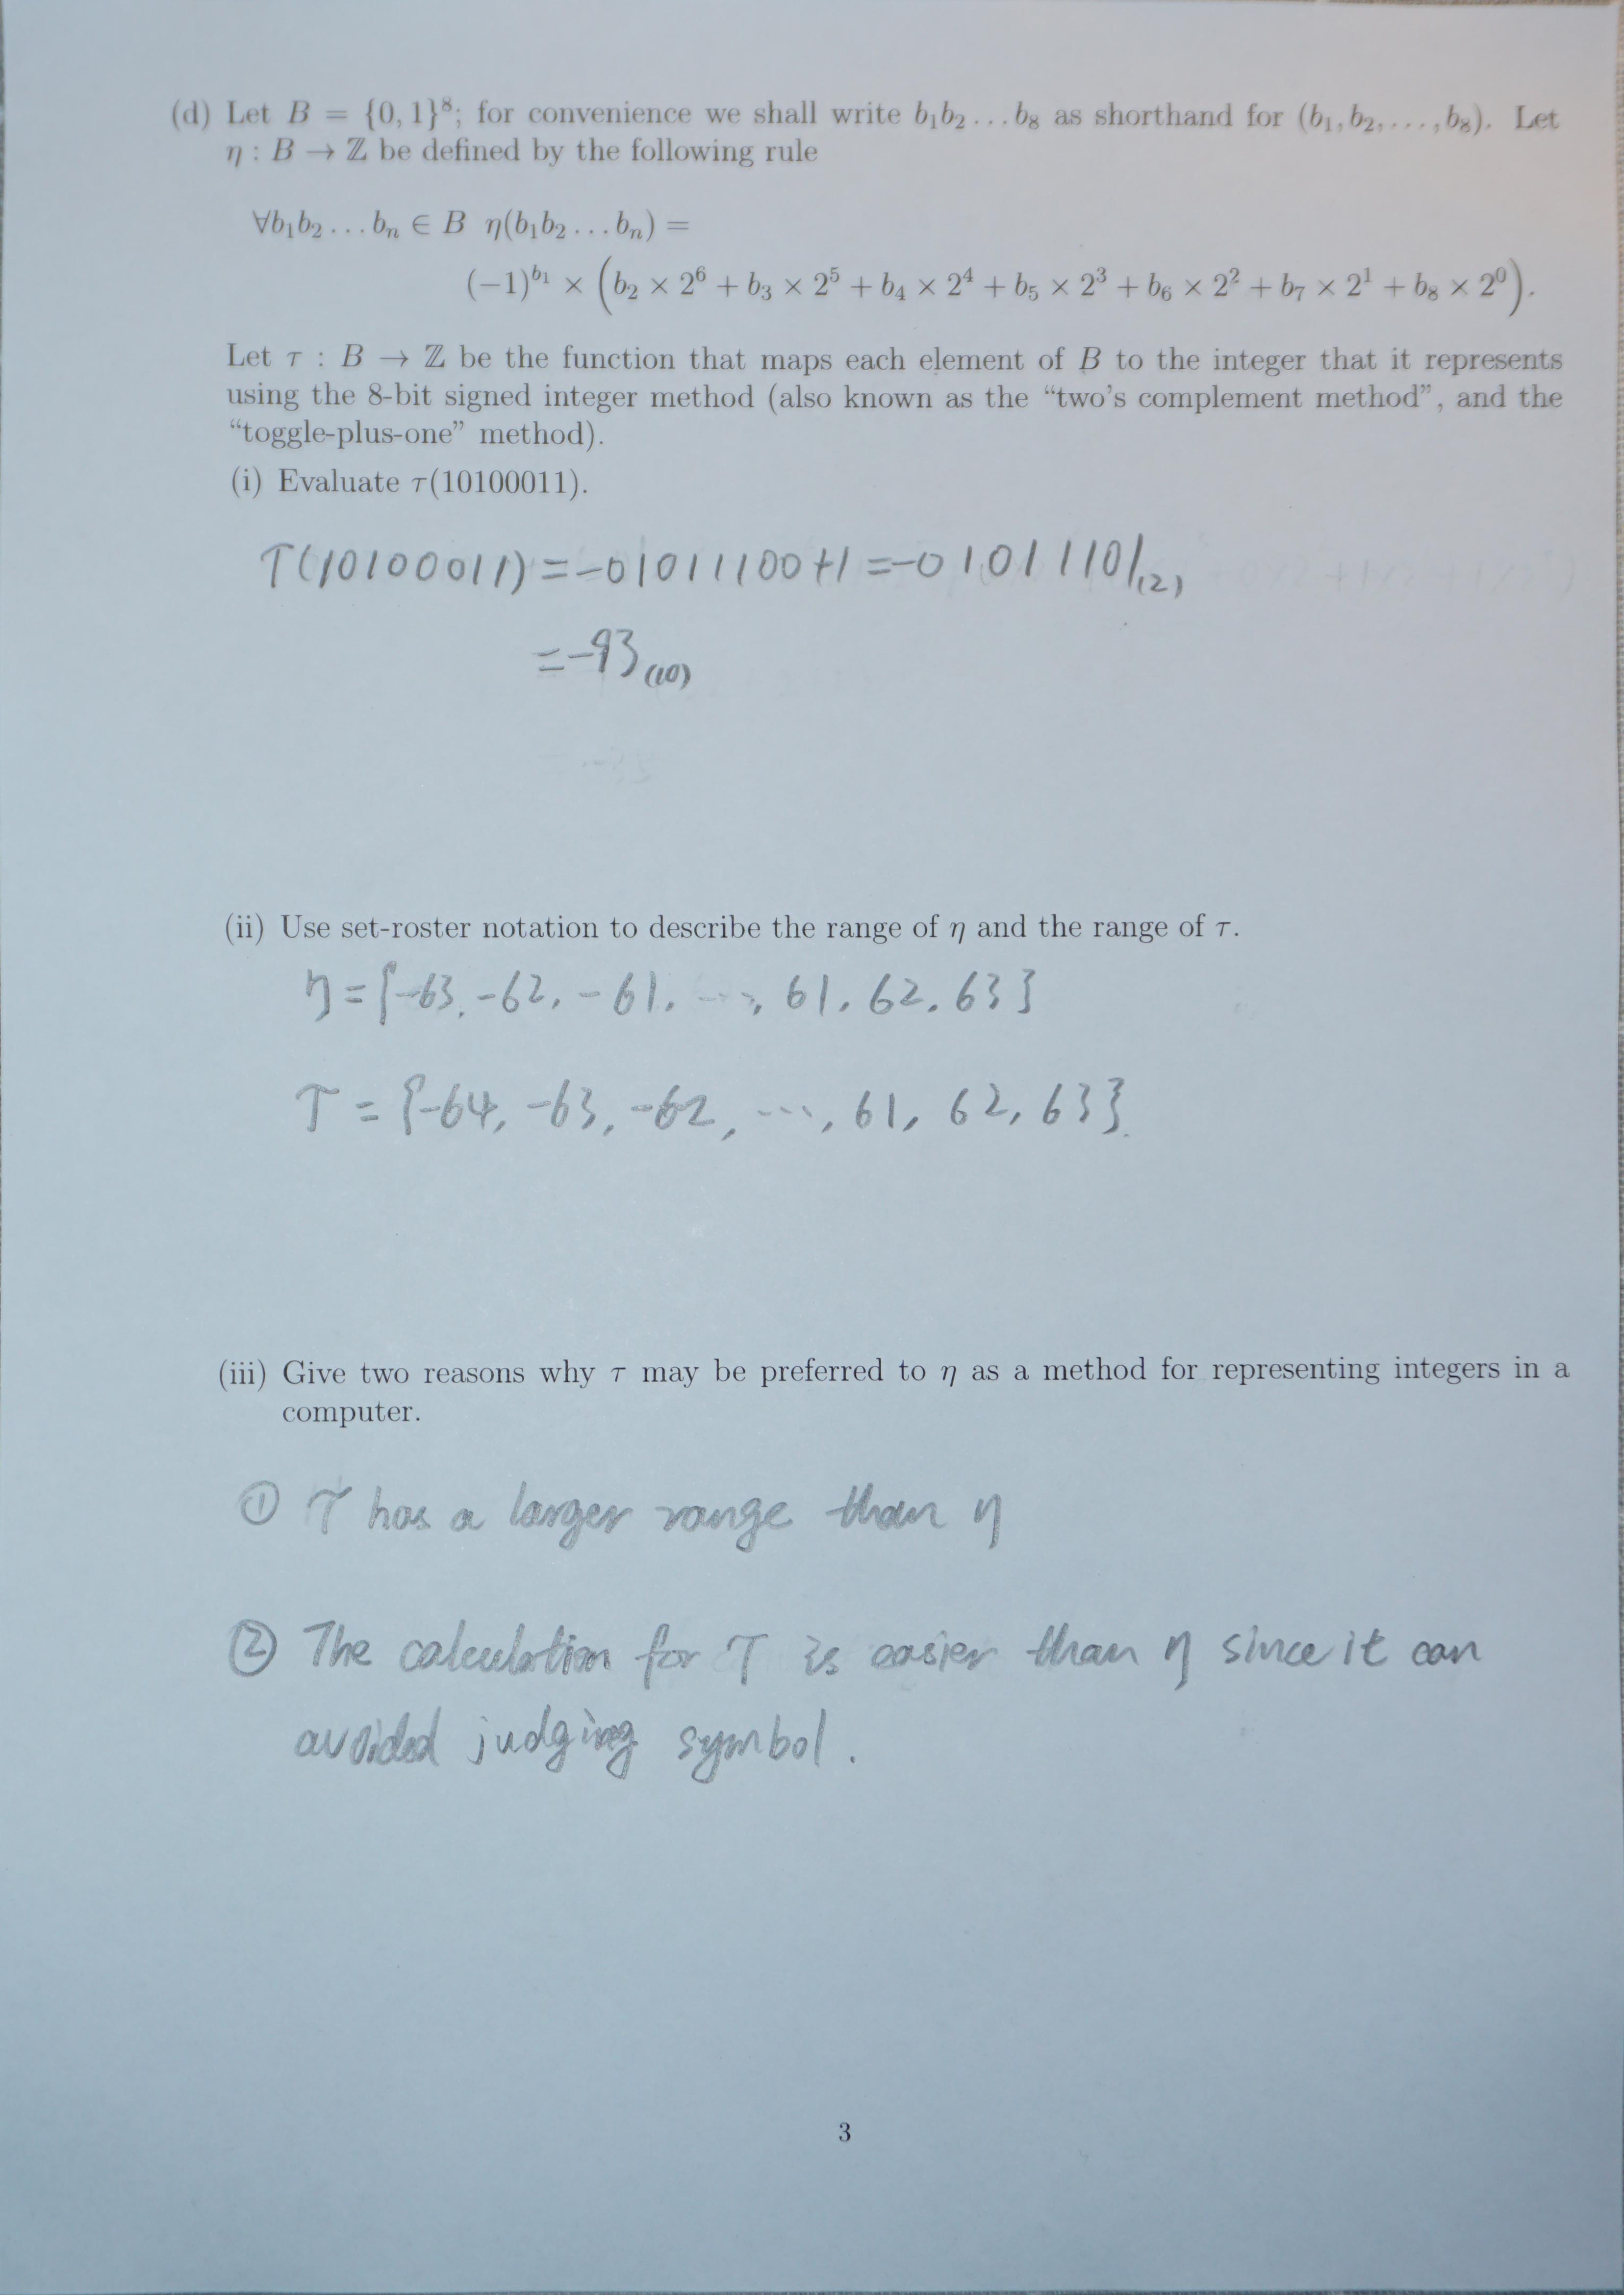 (d) Let B = {0, 1}⁸; for convenience we shall write b₁b₂ . . . b₈ as shorthand for (b₁, b₂, . . . , b₈). Let
η : B → ℤ be defined by the following rule
∀b₁b₂ . . . bₙ ∈ B η(b₁b₂ . . . bₙ) =
(−1)^b₁ × (b₂ × 2⁶ + b₃ × 2⁵ + b₄ × 2⁴ + b₅ × 2³ + b₆ × 2² + b₇ × 2¹ + b₈ × 2⁰).
Let τ : B → ℤ be the function that maps each element of B to the integer that it represents
using the 8-bit signed integer method (also known as the “two’s complement method”, and the
“toggle-plus-one” method).
(i) Evaluate τ(10100011).
τ(10100011) = −01011100+1 = −01011101₍₂₎
= −93₍₁₀₎
(ii) Use set-roster notation to describe the range of η and the range of τ.
η = {−63, −62, −61, ..., 61, 62, 63}
τ = {−64, −63, −62, ..., 61, 62, 63}.
(iii) Give two reasons why τ may be preferred to η as a method for representing integers in a
computer.
① τ has a larger range than η
② The calculation for τ is easier than η since it can
avoided judging symbol.
3